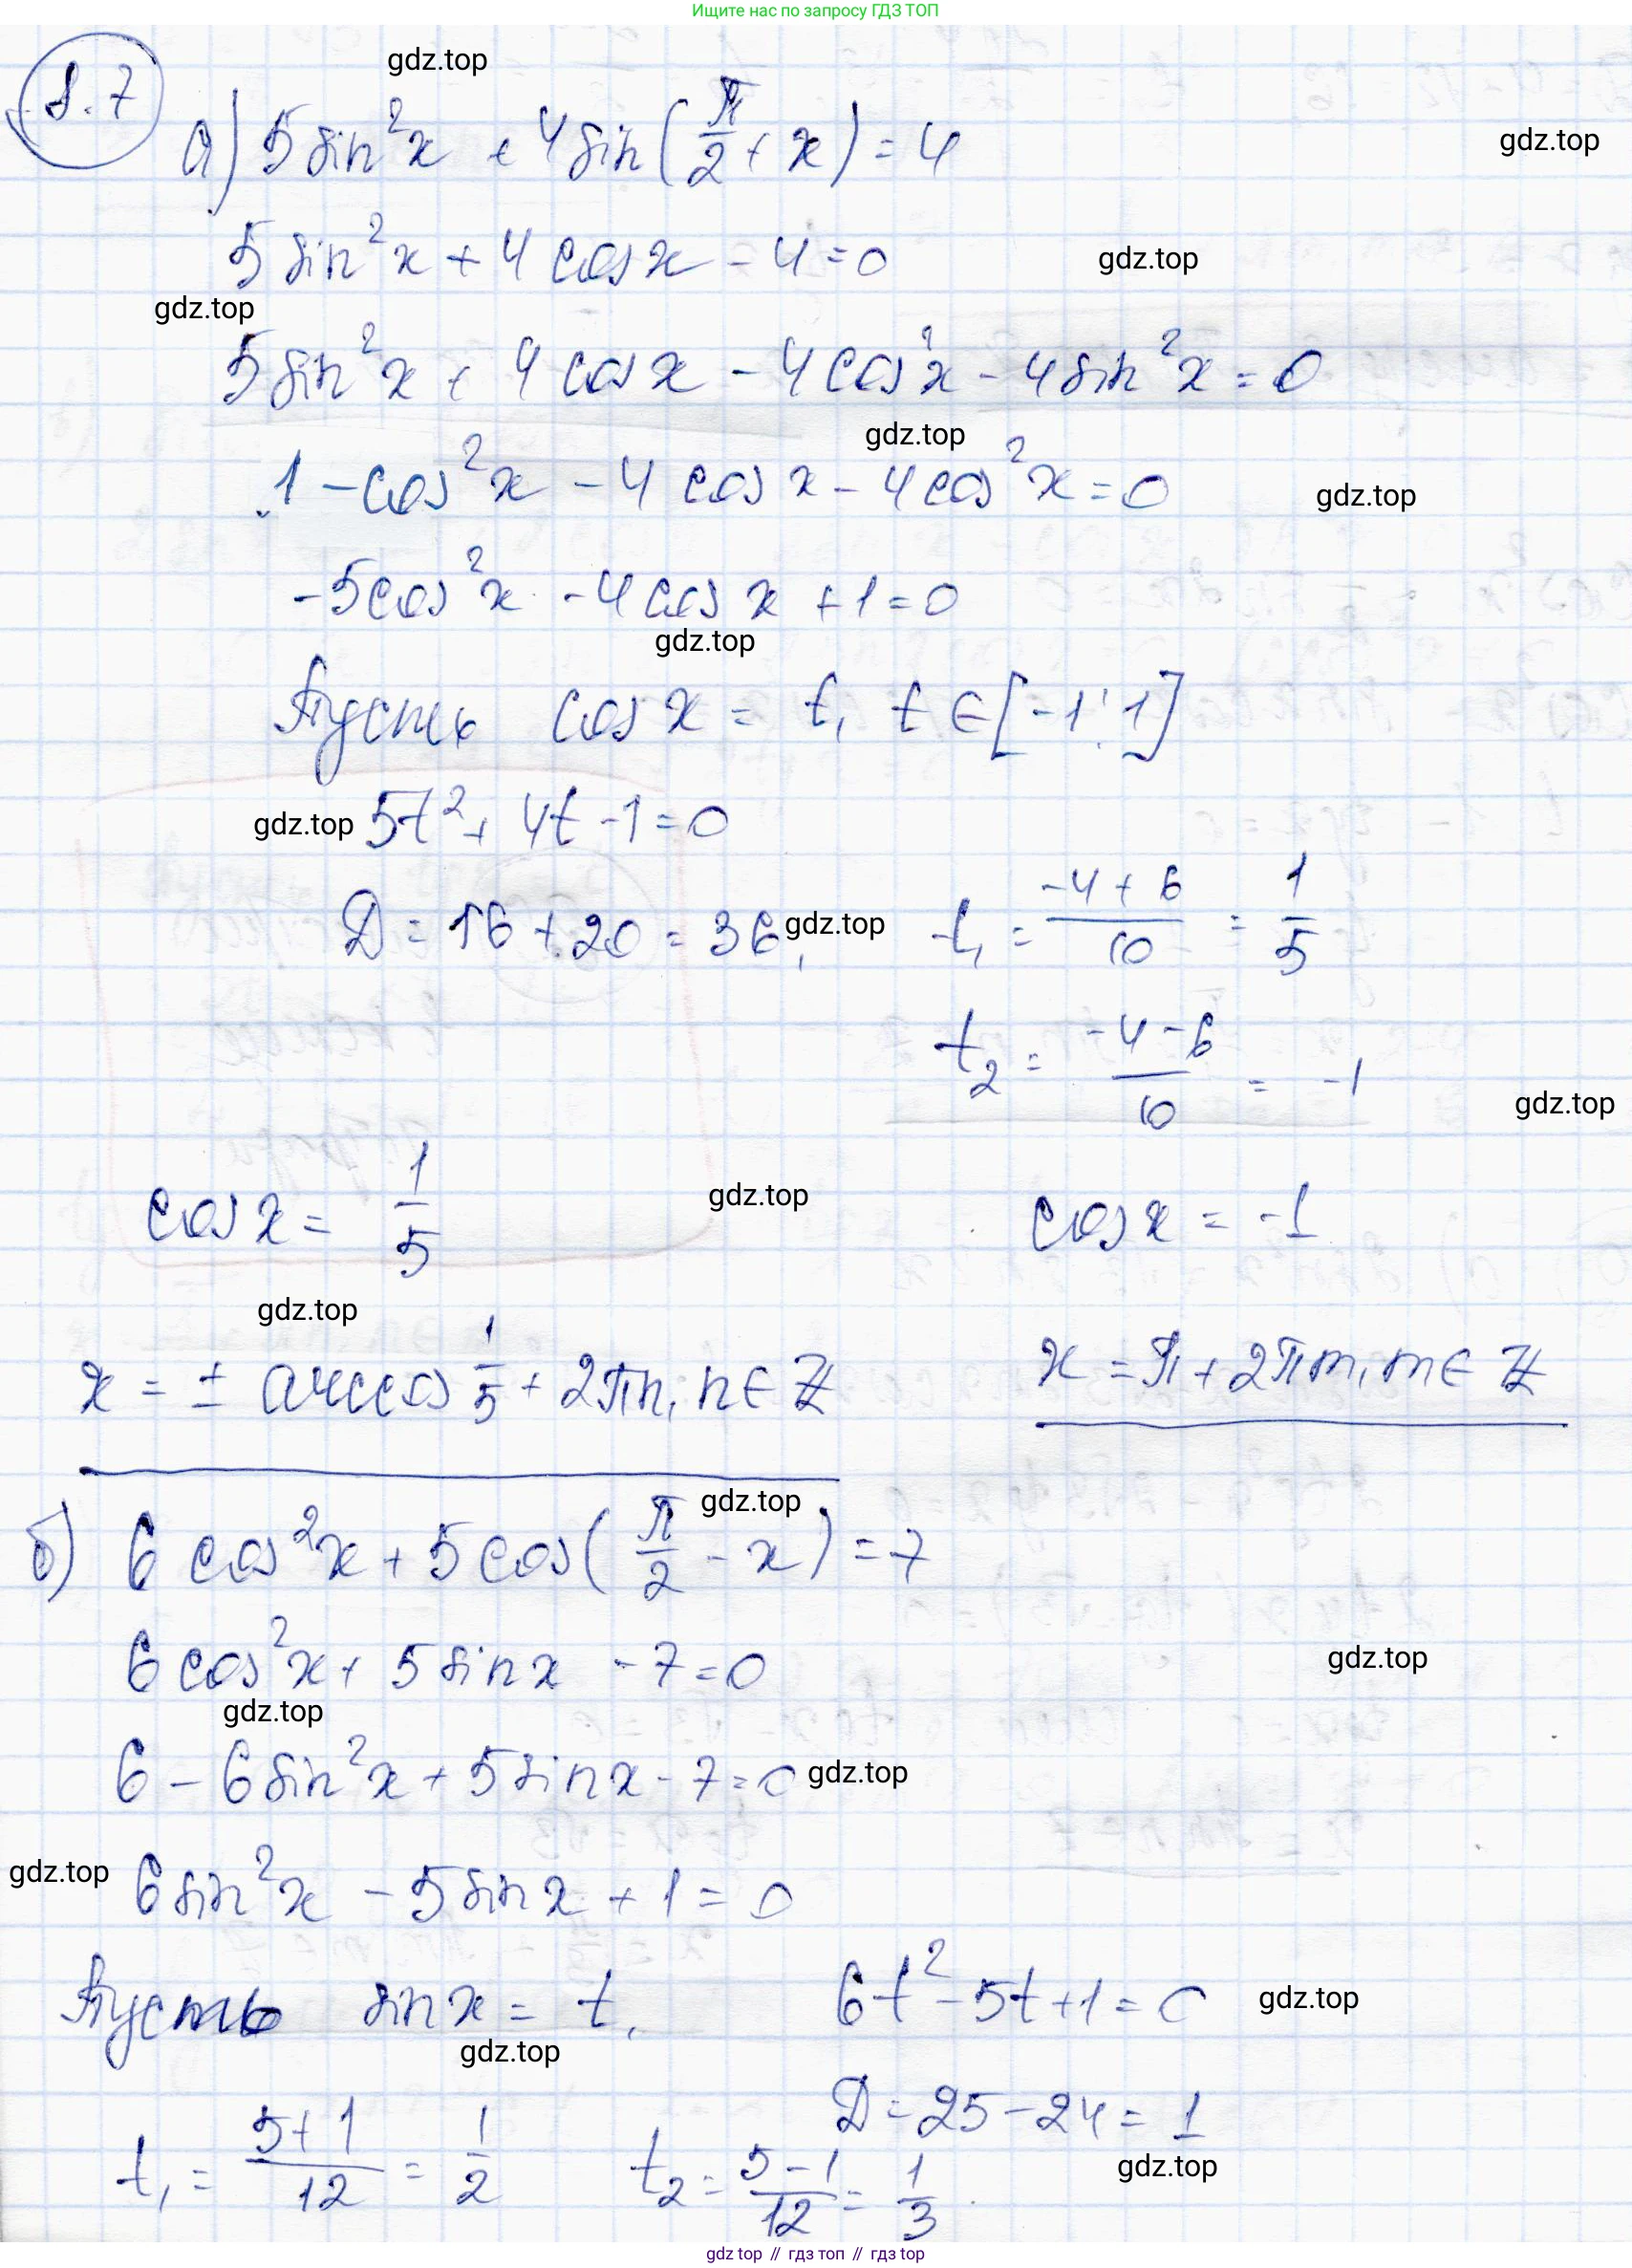 Ищите нас по запросу ГДЗ ТОП
8.7
gdz.top
а) 5 sin²x + 4 sin(π/2 + x) = 4
gdz.top
5 sin²x + 4 cos x - 4 = 0
gdz.top
gdz.top
5 sin²x + 4 cos x - 4 cos²x - 4 sin²x = 0
gdz.top
1 - cos²x - 4 cos x - 4 cos²x = 0
gdz.top
-5 cos²x - 4 cos x + 1 = 0
gdz.top
Пусть cos x = t, t ∈ [-1; 1]
gdz.top 5t² + 4t - 1 = 0
D = 16 + 20 = 36, gdz.top t₁ = (-4 + 6)/10 = 1/5
t₂ = (-4 - 6)/10 = -1
gdz.top
cos x = 1/5 gdz.top cos x = -1
gdz.top
x = ± arccos 1/5 + 2πn, n ∈ Z x = π + 2πm, m ∈ Z
gdz.top
б) 6 cos²x + 5 cos(π/2 - x) = 7
6 cos²x + 5 sin x - 7 = 0 gdz.top
gdz.top
6 - 6 sin²x + 5 sin x - 7 = 0 gdz.top
gdz.top 6 sin²x - 5 sin x + 1 = 0
Пусть sin x = t, 6t² - 5t + 1 = 0 gdz.top
gdz.top
D = 25 - 24 = 1
t₁ = (5 + 1)/12 = 1/2 t₂ = (5 - 1)/12 = 1/3 gdz.top
gdz.top // гдз топ // гдз top